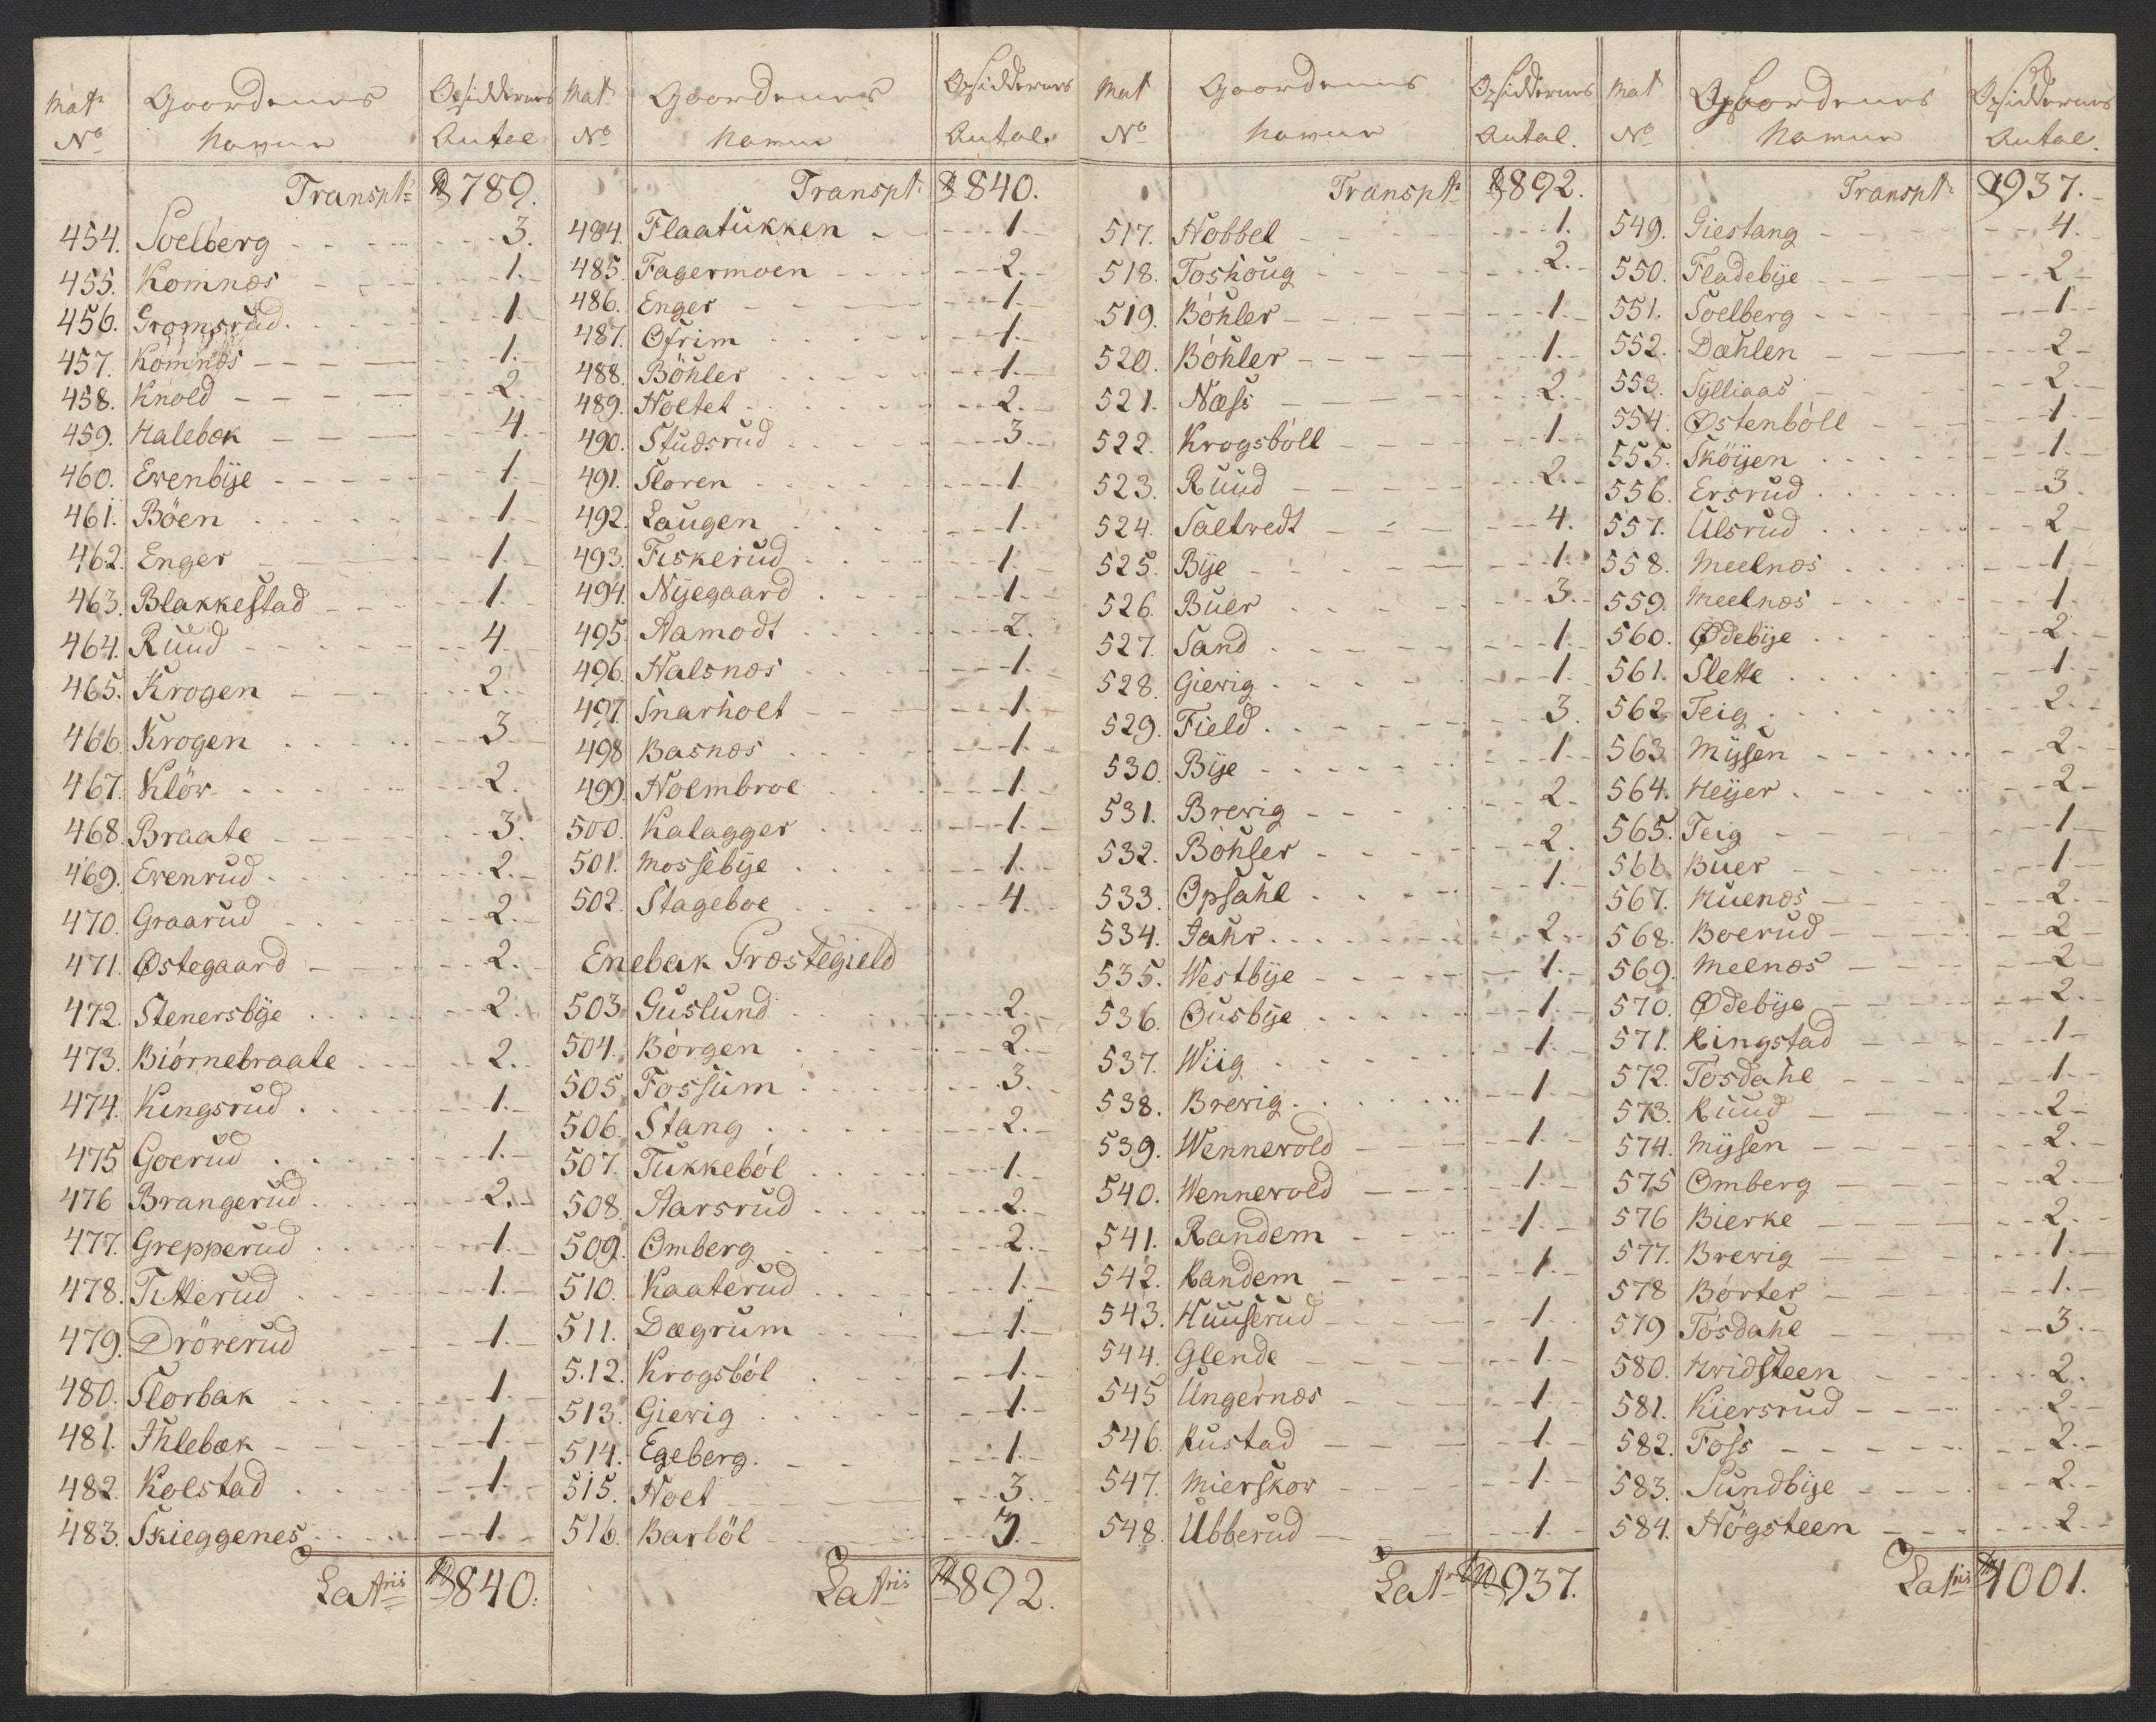 Mat: Gaardenes Opsiddernes
No Nafne Antal
Transpt: 789.
454. Soelberg 3.
455. Komnæs 1.
456. Gromsrud 1.
457. Komnæs 1.
458. Knold 2.
459. Halebæk 4.
460. Evenbÿe 1.
461. Böen 1.
462. Enger 1.
463. Blakkestad 1.
464. Ruud 4
465. Krogen 2.
466. Krogen 3
467. Klöv 2.
468. Braate 3.
469. Evenrud 2.
470. Graarud 2.
471. Østegaard 2.
472. Stenersbÿe 2.
473. Biörnebraate 2.
474. Kingsrud 1.
475 Goerud 1.
476 Brangerud 2.
477. Grepperud 1.
478. Titterud 1.
479. Dröverud 1.
480. Slorbak 1.
481. Ihlebæk 1.
482. Kolstad 1.
483. Skieggenes 1.
Latriis 840.
Mat Gaardenes Opsiddernes
No Nafne Antal.
Transpt: 840.
484. Flaatukken 1.
485. Fagermoen 2.
486. Enger 1.
487. Ofrim 1.
488. Böhler 1.
489. Holtet 2.
490. Studsrud 3.
491. Sloren 1.
492. Laugen 1.
493. Fiskerud 1.
494. Nÿegaard 1.
495. Aamodt 2.
496. Halsnæs 1.
497. Snarholt 1.
498 Basnæs 1.
499. Holmbroe 1.
500. Kalagger 1.
501. Mossebÿe 1.
502. Stageboe 4.
Enebak Præstegield
503. Guslund 2.
504. Börgen 2.
505. Fossum 3.
506. Stang 2.
507. Tukkeböl 1.
508. Aarsrud 2.
509. Omberg 2.
510. Kaaterud 1.
511. Dægrum 1.
512. Krogsböl 1.
513. Gievig 1.
514. Egeberg. 1.
515. Holt 3.
516. Barböl 7.
Latriis 892.
Mat Gaardenes Opsiddernes
No Nafne Antal.
Transpt: 892.
517. Hobbel 1.
518. Toshoug 2.
519. Böhler 1.
520. Böhler 1.
521. Næss 2.
522. Krogsböll 1.
523. Ruud 2.
524. Saltvedt 4.
525. Bÿe 1.
526. Buer 3.
527. Sand 1.
528. Gievig 1.
529. Field 3.
530. Bÿe 1.
531. Brevig 2.
532. Böhler 2.
533. Opsahl 1.
534. Jahr 2.
535. Westbÿe 1.
536. Ousbÿe 1.
537. Wiig 1.
538. Brevig 1.
539. Wennevold 1.
540. Wennevold 1.
541. Randem 1.
542. Randem 1.
543. Huuserud 1.
544. Glende 1.
545 Ungernæs 1.
546. Rustad 1.
547. Mierskov 1.
548. Ubberud 1.
Latr 937.
Mat Gaardenes Opsiddernes
No Nafne Antal.
Transpt: 937.
549. Giestang 4.
550. Fladebÿe 2
551. Soelberg 1.
552. Dæhlen 2
553. Sÿlliaas 2.
554. Østenböll 1.
555. Sköÿen 1.
556. Ersrud 3.
557. Ulsrud 2
558. Meelnæs 1.
559. Meelnæs 1.
560. Ødebÿe 2.
561. Slette 1.
562. Teig 2.
563. Mÿsen 2.
564. Heÿer 2
565. Teig 1.
566. Buer 1
567. Huenæs 2.
568. Boerud 2
569. Melnæs 2
570. Ødebÿe 2.
571. Ringstad 1
572. Tosdahl 1.
573. Ruud 2
574. Mÿsen 2.
575 Omberg 2.
576 Bierke 2.
577. Brevig 1.
578 Börter 1.
579 Tösdahl 3.
580. Hvidsteen 2.
581. Kiersrud 2.
582. Foss 2.
583. Sundbÿe 2.
584. Högsteen 2
Latriis 1001.